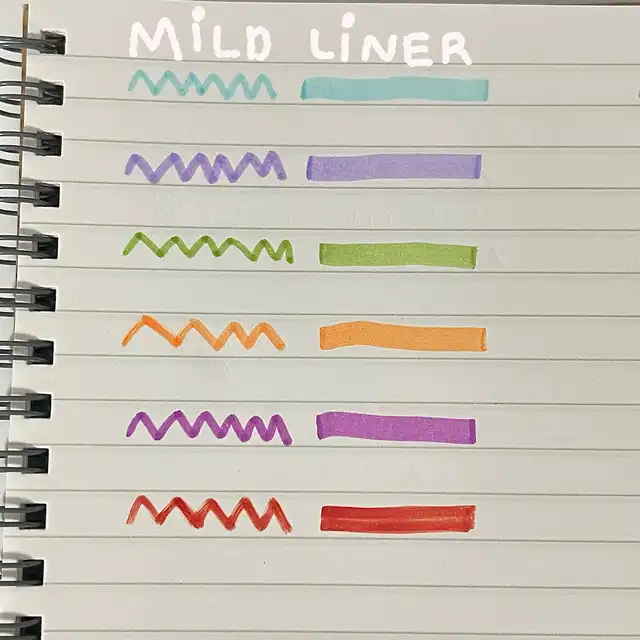 MiLD LiNER